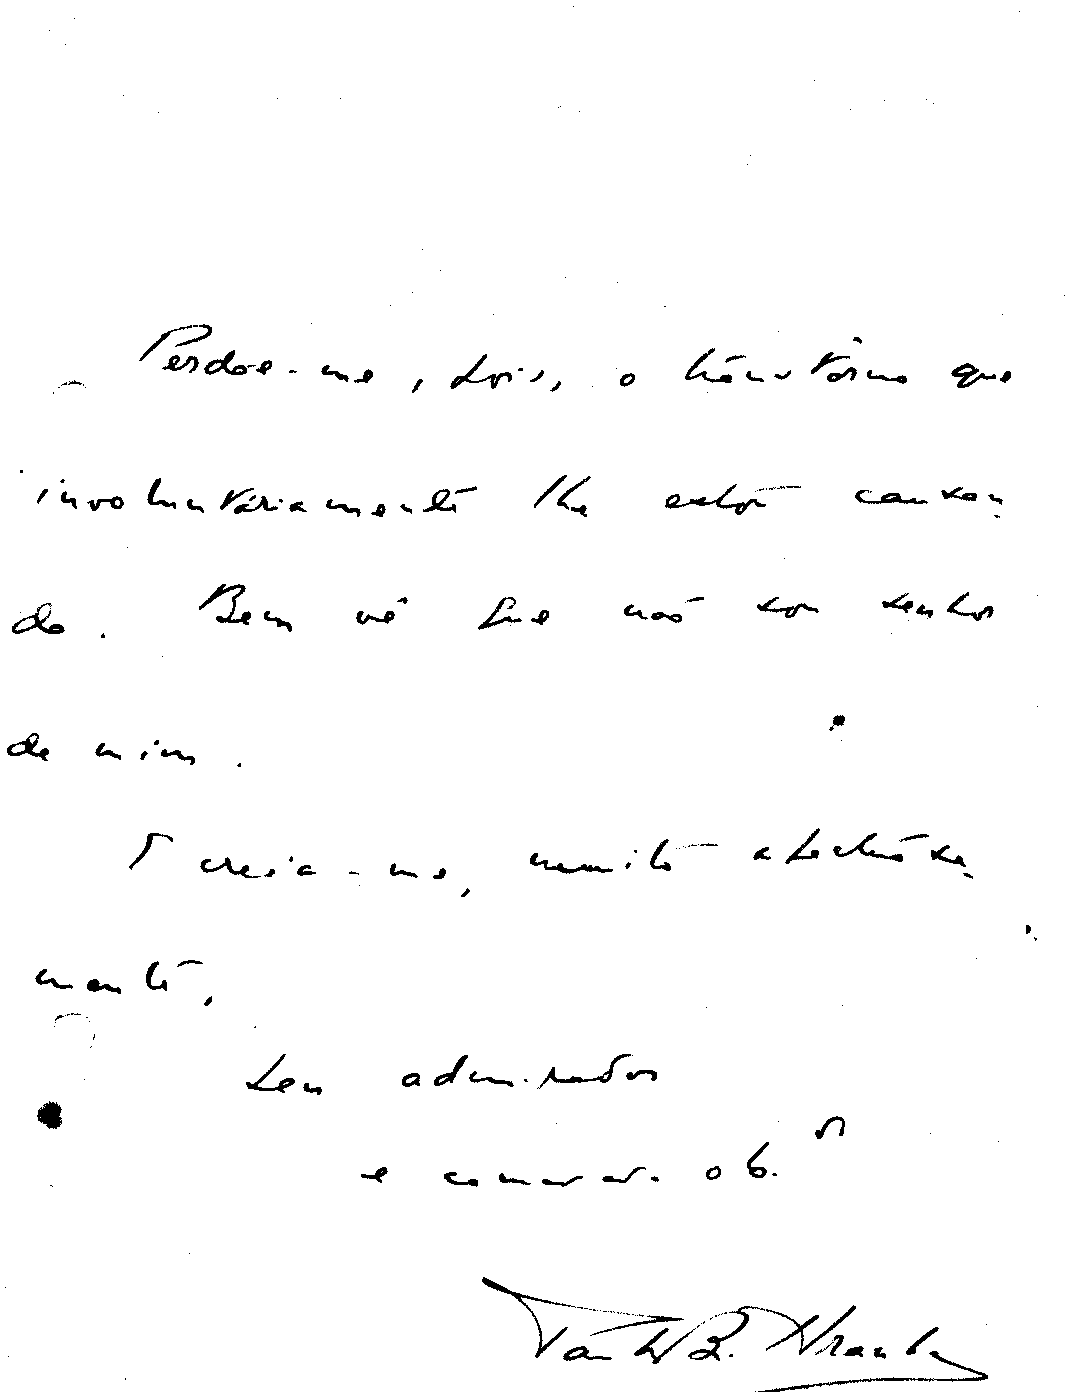 Perdoe-me, pois, o transtôrno que
involuntáriamente lhe estou causan-
do. Bem vê que não sou senhor
de mim.
E creia-me, muito afectuosa-
mente,
seu admirador
e camarada ob.